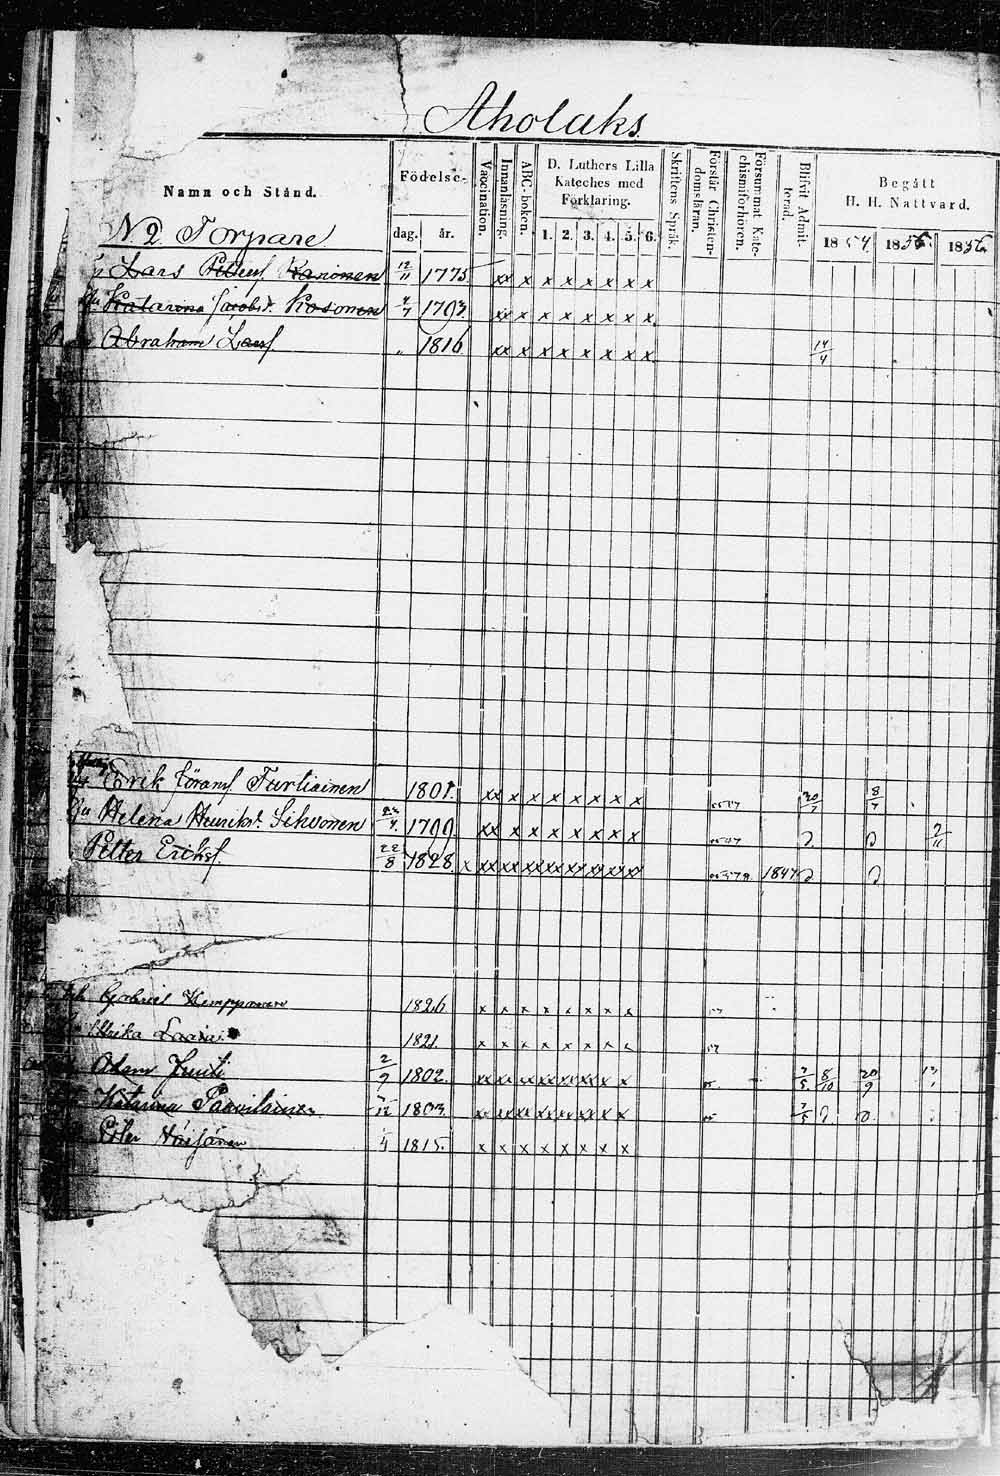 Aholaks
Namn och Stånd. Födelse- dag. år. Vaccination. Innanläsning. ABC-boken. D. Luthers Lilla Kateches med Förklaring. 1. 2. 3. 4. 5. 6. Skriftens Språk. Förstår Christendomsläran. Försummat Katechismiförhören. Blifvit Admitterad. Begått H. H. Nattvard. 1854. 1855. 1856.
N 2 Torpare
Lars Petters. 12/11 1775 xx x x x x x x x
Hu Katarina Jacobsd. Kosonen 1793. xx x x x x x x x
Abraham Larss. " 1816 xx x x x x x x x 14/4
Erik Görans. Turtiainen 1801. xx x x x x x x x 20/7 8/7
Hu Helena Henriksd. Sihvonen 1799 xx x x x x x x x 2/11
Petter Erikss. 22/8 1828. x xx xx xx xx xx xx xx xx 1847
Gabriel Kemppainen 1826 x x x x x x x x
Ulrika 1821. x x x x x x x x
Adam Juuti 2/9 1802. xx xx xx xx xx xx x x 7/5 8/10 20/9
Katarina Paavilainen 1803. xx xx xx xx xx x x x 7/5
1/4 1815. x x x x x x x x